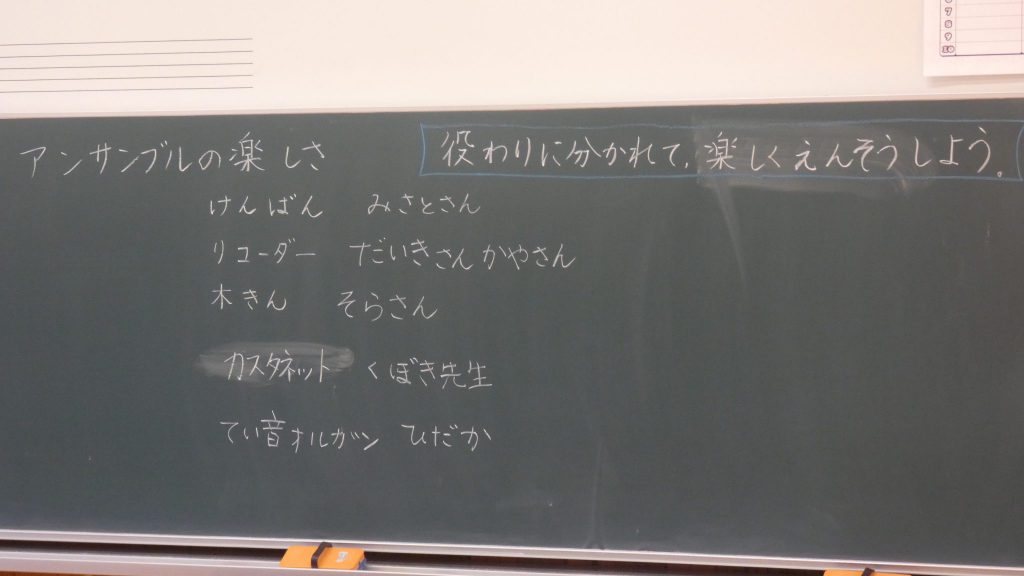 アンサンブルの楽しさ
役わりに分かれて,楽しくえんそうしよう。
けんばん みさとさん
リコーダー だいきさん かやさん
木きん そらさん
カスタネット くぼき先生
てい音オルガン ひだか
7
8
9
10